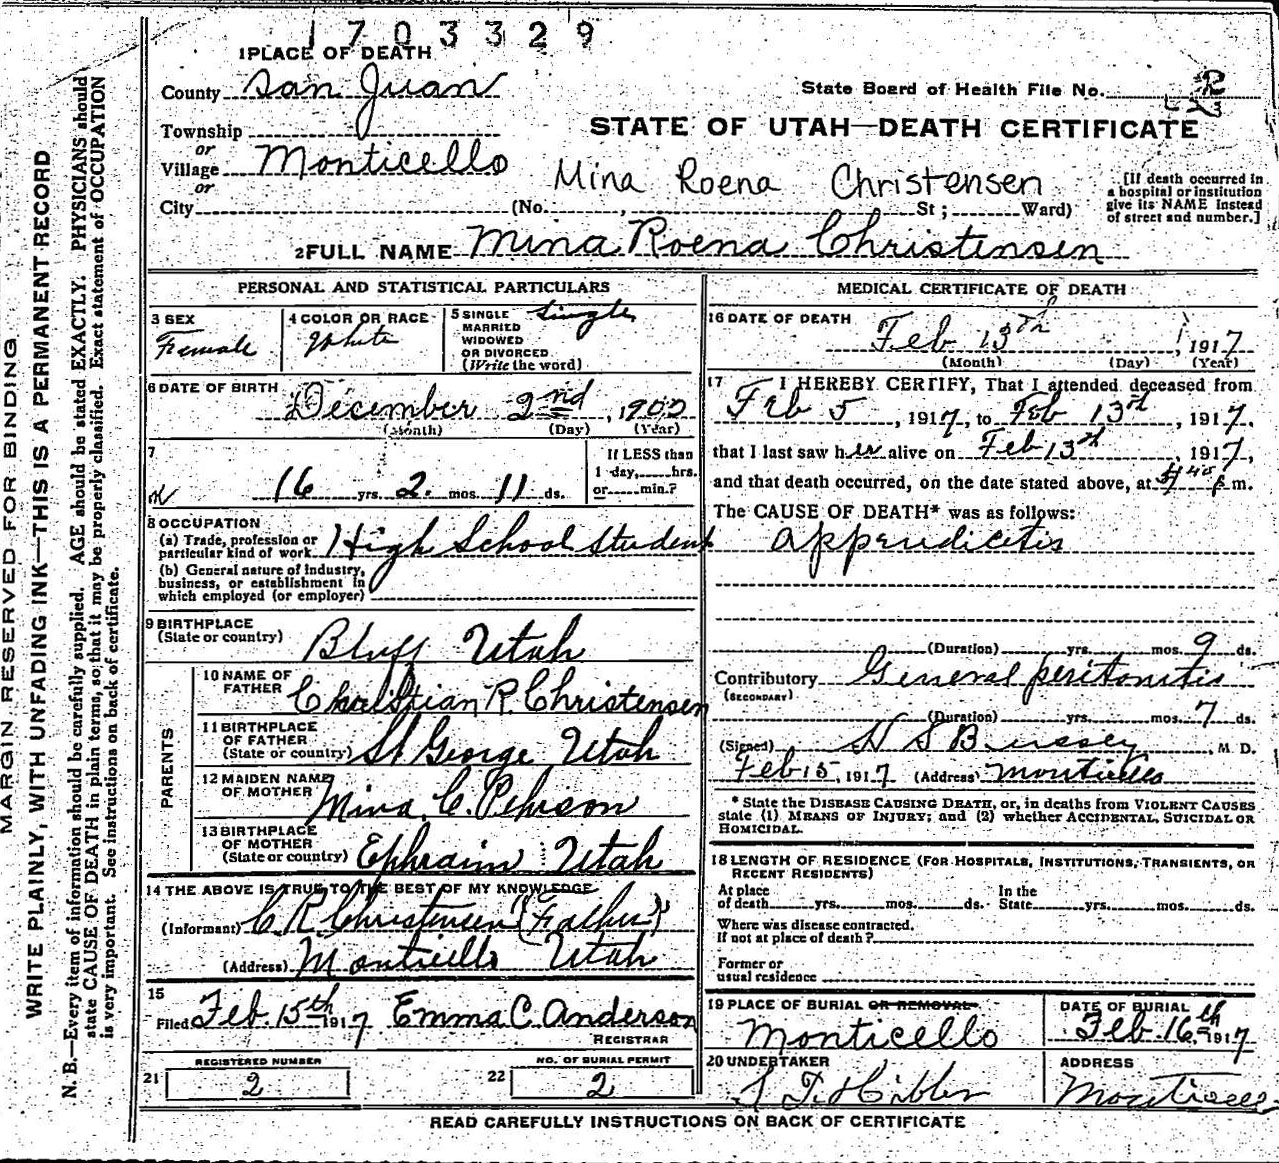 1703329
1 PLACE OF DEATH
County San Juan
State Board of Health File No. R
Township
STATE OF UTAH—DEATH CERTIFICATE
or
Village Monticello
Mina Roena Christensen
or
City (No. , St ; Ward)
[If death occurred in
a hospital or institution
give its NAME instead
of street and number.]
2 FULL NAME Mina Roena Christensen
PERSONAL AND STATISTICAL PARTICULARS
3 SEX
Female
4 COLOR OR RACE
White
5 SINGLE
MARRIED
WIDOWED
OR DIVORCED
(Write the word)
Single
6 DATE OF BIRTH
December 2nd, 1900
(Month) (Day) (Year)
7
16 yrs. 2 mos. 11 ds.
If LESS than
1 day, hrs.
or min.?
8 OCCUPATION
(a) Trade, profession or
particular kind of work High School Student
(b) General nature of industry,
business, or establishment in
which employed (or employer)
9 BIRTHPLACE
(State or country) Bluff Utah
PARENTS
10 NAME OF
FATHER Christian R. Christensen
11 BIRTHPLACE
OF FATHER
(State or country) St George Utah
12 MAIDEN NAME
OF MOTHER Mina C. Pehrson
13 BIRTHPLACE
OF MOTHER
(State or country) Ephraim Utah
14 THE ABOVE IS TRUE TO THE BEST OF MY KNOWLEDGE
(Informant) C. R. Christensen (Father)
(Address) Monticello Utah
15
Filed Feb. 15th 1917 Emma C. Anderson
REGISTRAR
REGISTERED NUMBER
21 2
NO. OF BURIAL PERMIT
22 2
MEDICAL CERTIFICATE OF DEATH
16 DATE OF DEATH
Feb 13th, 1917
(Month) (Day) (Year)
17 I HEREBY CERTIFY, That I attended deceased from
Feb 5, 1917, to Feb 13th, 1917,
that I last saw her alive on Feb 13th, 1917,
and that death occurred, on the date stated above, at P m.
The CAUSE OF DEATH* was as follows:
Appendicitis
(Duration) yrs. mos. 9 ds.
Contributory General peritonitis
(SECONDARY)
(Duration) yrs. mos. 7 ds.
(Signed) , M. D.
Feb 15, 1917 (Address) Monticello
* State the DISEASE CAUSING DEATH, or, in deaths from VIOLENT CAUSES
state (1) MEANS OF INJURY; and (2) whether ACCIDENTAL, SUICIDAL OR
HOMICIDAL.
18 LENGTH OF RESIDENCE (FOR HOSPITALS, INSTITUTIONS, TRANSIENTS, OR
RECENT RESIDENTS)
At place
of death yrs. mos. ds.
In the
State yrs. mos. ds.
Where was disease contracted,
if not at place of death?
Former or
usual residence
19 PLACE OF BURIAL OR REMOVAL
Monticello
DATE OF BURIAL
Feb. 16th 1917
20 UNDERTAKER
ADDRESS
Monticello
READ CAREFULLY INSTRUCTIONS ON BACK OF CERTIFICATE
MARGIN RESERVED FOR BINDING
WRITE PLAINLY, WITH UNFADING INK—THIS IS A PERMANENT RECORD
N. B.—Every item of information should be carefully supplied. AGE should be stated EXACTLY. PHYSICIANS should
state CAUSE OF DEATH in plain terms, so that it may be properly classified. Exact statement of OCCUPATION
is very important. See instructions on back of certificate.